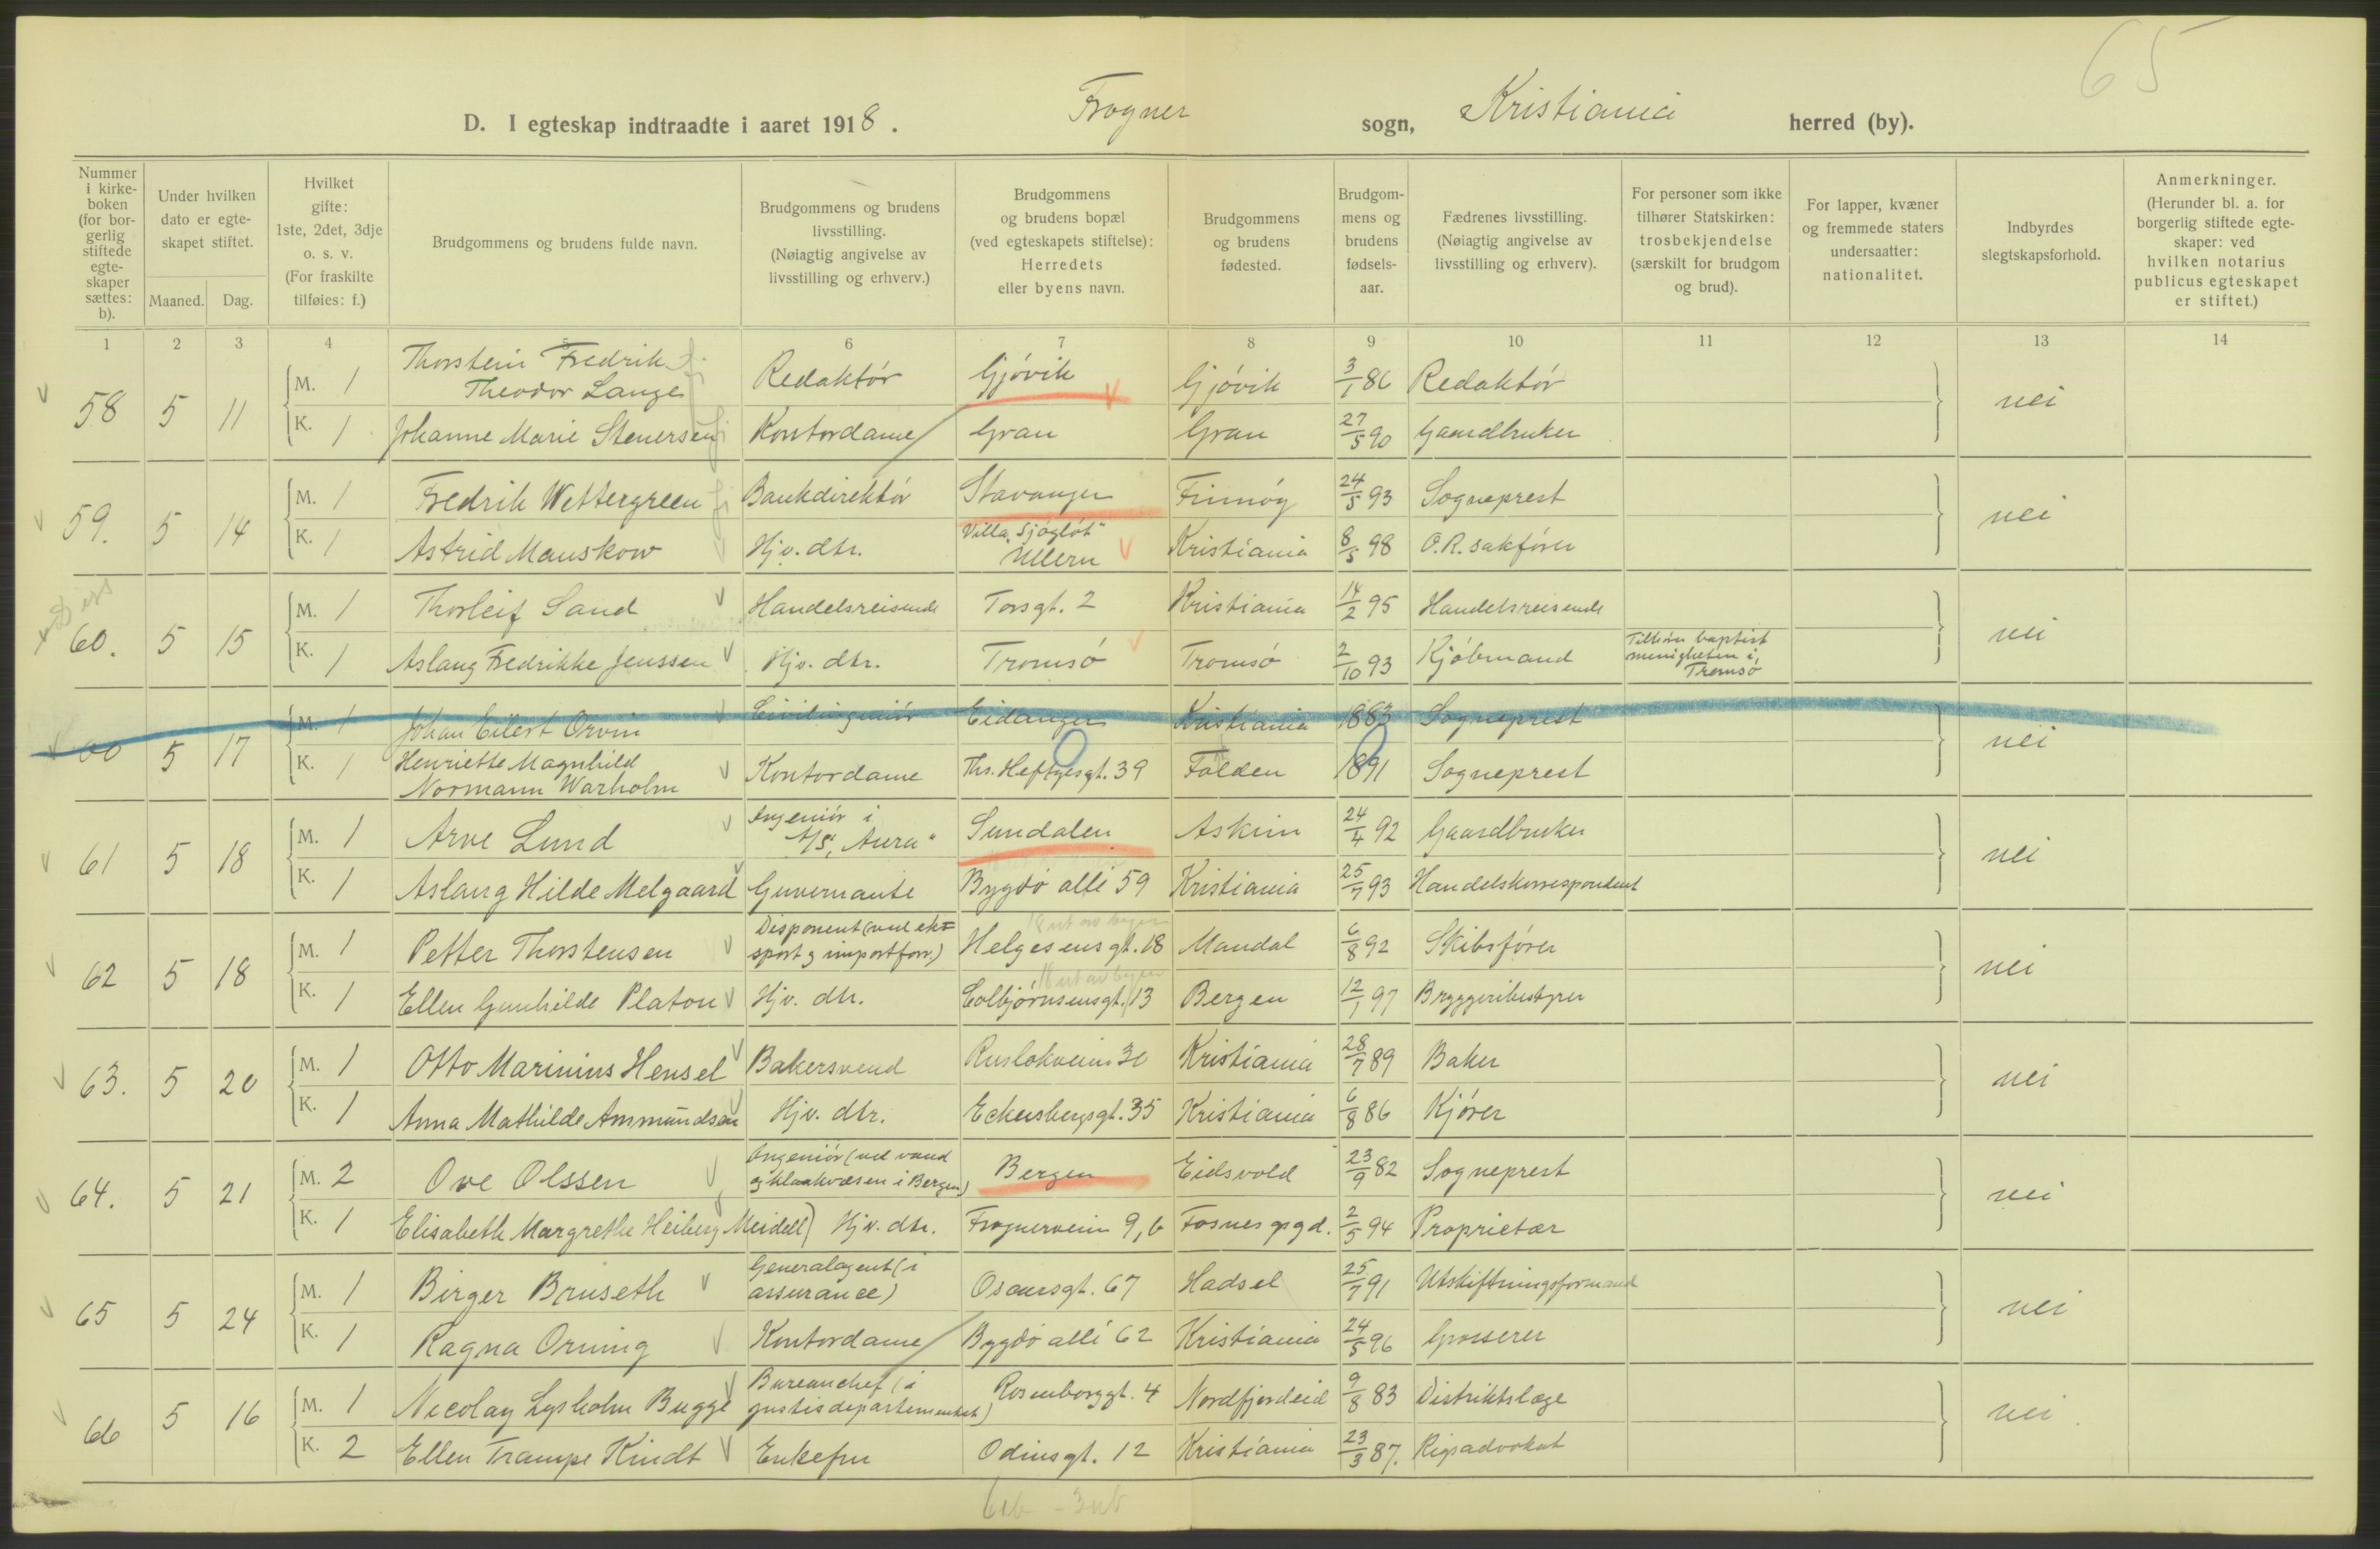 65
D. I egteskap indtraadte i aaret 1918. Frogner sogn, Kristiania herred (by).
Nummer i kirkeboken (for borgerlig stiftede egteskaper sættes: b).
Under hvilken dato er egteskapet stiftet.
Maaned. Dag.
Hvilket gifte: 1ste, 2det, 3dje o. s. v. (For fraskilte tilføies: f.)
Brudgommens og brudens fulde navn.
Brudgommens og brudens livsstilling. (Nøiagtig angivelse av livsstilling og erhverv.)
Brudgommens og brudens bopæl (ved egteskapets stiftelse): Herredets eller byens navn.
Brudgommens og brudens fødested.
Brudgommens og brudens fødselsaar.
Fædrenes livsstilling. (Nøiagtig angivelse av livsstilling og erhverv).
For personer som ikke tilhører Statskirken: trosbekjendelse (særskilt for brudgom og brud).
For lapper, kvæner og fremmede staters undersaatter: nationalitet.
Indbyrdes slegtskapsforhold.
Anmerkninger. (Herunder bl. a. for borgerlig stiftede egteskaper: ved hvilken notarius publicus egteskapet er stiftet.)
1 2 3 4 5 6 7 8 9 10 11 12 13 14
58 5 11 M. 1 Thorstein Fredrik Theodor Lange Redaktör Gjövik Gjövik 3/1 86 Redaktör nei
K. 1 Johanne Marie Stenersen Kontordame Gran Gran 27/5 90 Gaardbruker
59. 5 14 M. 1 Fredrik Wettergreen Bankdirektör Stavanger Finnöy 24/5 93 Sogneprest nei
K. 1 Astrid Manskow Hjv. dtr. Villa "Sjögløt" Ullern Kristiania 8/5 98 O.R. sakförer
60. 5 15 M. 1 Thorleif Sand Handelsreisende Torsgt. 2 Kristiania 14/2 95 Handelsreisende nei
K. 1 Aslaug Fredrikke Jenssen Hjv. dtr. Tromsö Tromsö 2/10 93 Kjöbmand Tilhører baptist menigheten i Tromsö
00 5 17 M. 1 Johan Eilert Orvin Civilingeniör Eidanger Kristiania 1883 Sogneprest nei
K. 1 Henriette Magnhild Normann Warholm Kontordame Ths. Heftyesgt. 39 Folden 1891 Sogneprest
61 5 18 M. 1 Arve Lund Ingeniör i A/S "Aura" Sundalen Askim 24/4 92 Gaardbruker nei
K. 1 Aslaug Hilde Melgaard Guvernante Bygdö allé 59 Kristiania 25/7 93 Handelskorrespondent
62 5 18 M. 1 Petter Thorstensen Disponent (ved eksport og importforr.) Helgesensgt. 18 Mandal 6/8 92 Skibsförer nei
K. 1 Ellen Gunhilde Platou Hjv. dtr. Colbjörnsensgt. 13 Bergen 12/1 97 Bryggeribestyrer
63. 5 20 M. 1 Otto Marinius Hensel Bakersvend Ruslökveien 30 Kristiania 28/7 89 Baker nei
K. 1 Anna Mathilde Ammundsen Hjv. dtr. Eckersbergsgt. 35 Kristiania 6/8 86 Kjörer
64. 5 21 M. 2 Ove Olssen Ingeniör (ved vand og kloakvæsen i Bergen) Bergen Eidsvold 23/9 82 Sogneprest nei
K. 1 Elisabeth Margrethe Heiberg Meidell Hjv. dtr. Frognerveien 9, b Fosnes prgd. 2/5 94 Proprietær
65 5 24 M. 1 Birger Bruseth Generalagent (i assurance) Oscarsgt. 67 Hadsel 25/7 91 Utskiftningsformand nei
K. 1 Ragna Orning Kontordame Bygdö allé 62 Kristiania 24/5 96 Grosserer
66 5 16 M. 1 Nicolay Lysholm Bugge Bureauchef (i justisdepartementet) Rosenborggt. 4 Nordfjordeid 9/8 83 Distriktslæge nei.
K. 2 Ellen Trampe Kindt Enkefru Odinsgt. 12 Kristiania 23/3 87. Rigsadvokat